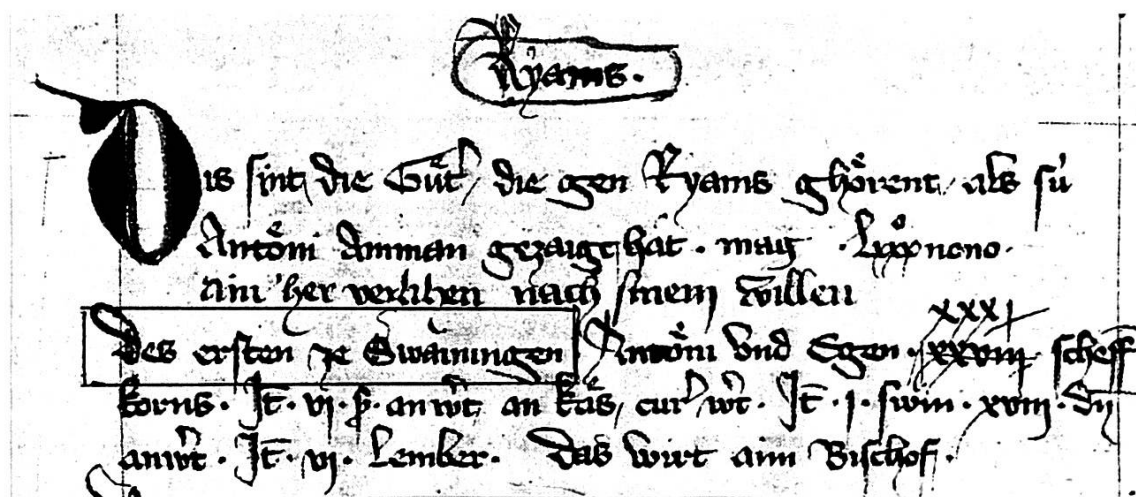 Ryams.
Dis sint die Güt͛ die gen Ryams ghörent als sú
Antöni Amman gezaiget hat · mag · lxx̊ nono ·
ain her verlihen nach sinem willen
xxxi
Des ersten ze Swainingen Antöni vnd Egen · xxviij scheff
korns · It̄ · vi · ꝭ · anwt̾ an käs, cur͛ wt̾ · It̄ · i · swin · xviij · dn̄
anwt̾ · It̄ · vi · Lember · das wirt aim Bischof ·